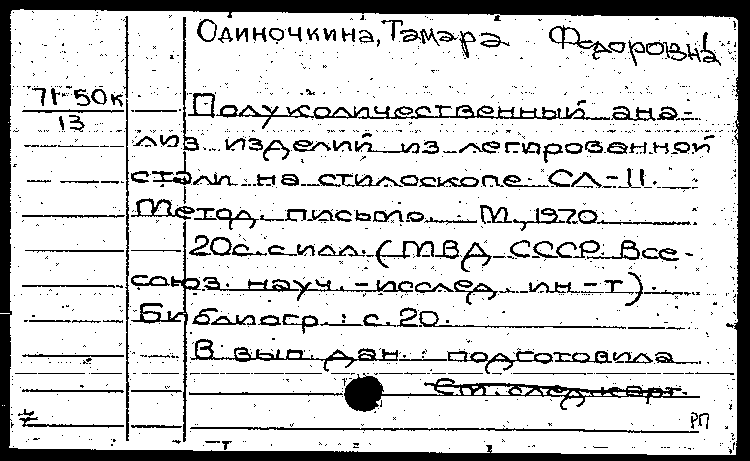 Одиночкина, Тамара Федоровна
71-50к
13
Полуколичественный ана-
лиз изделий из легированной
стали на стилоскопе СЛ-11.
Метод. письмо. М., 1970.
20с. с илл. (МВД СССР. Все-
союз. науч.-исслед. ин-т).
Библиогр.: с. 20.
В вып. дан.: подготовила
См. след. карт.
РП